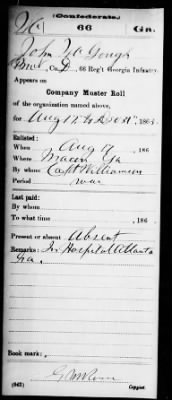 (Confederate.)
Mc 66 Ga.
John McGough
Co. D, 66 Reg't Georgia Infantry.
Appears on
Company Muster Roll
of the organization named above,
for Aug 17 to Oct 31, 1863.
Enlisted:
When Aug 17, 186
Where Macon Ga
By whom Capt Williamson
Period war
Last paid:
By whom
To what time , 186
Present or absent Absent
Remarks: In Hospital Atlanta
Ga.
Book mark:
(642) Copyist.